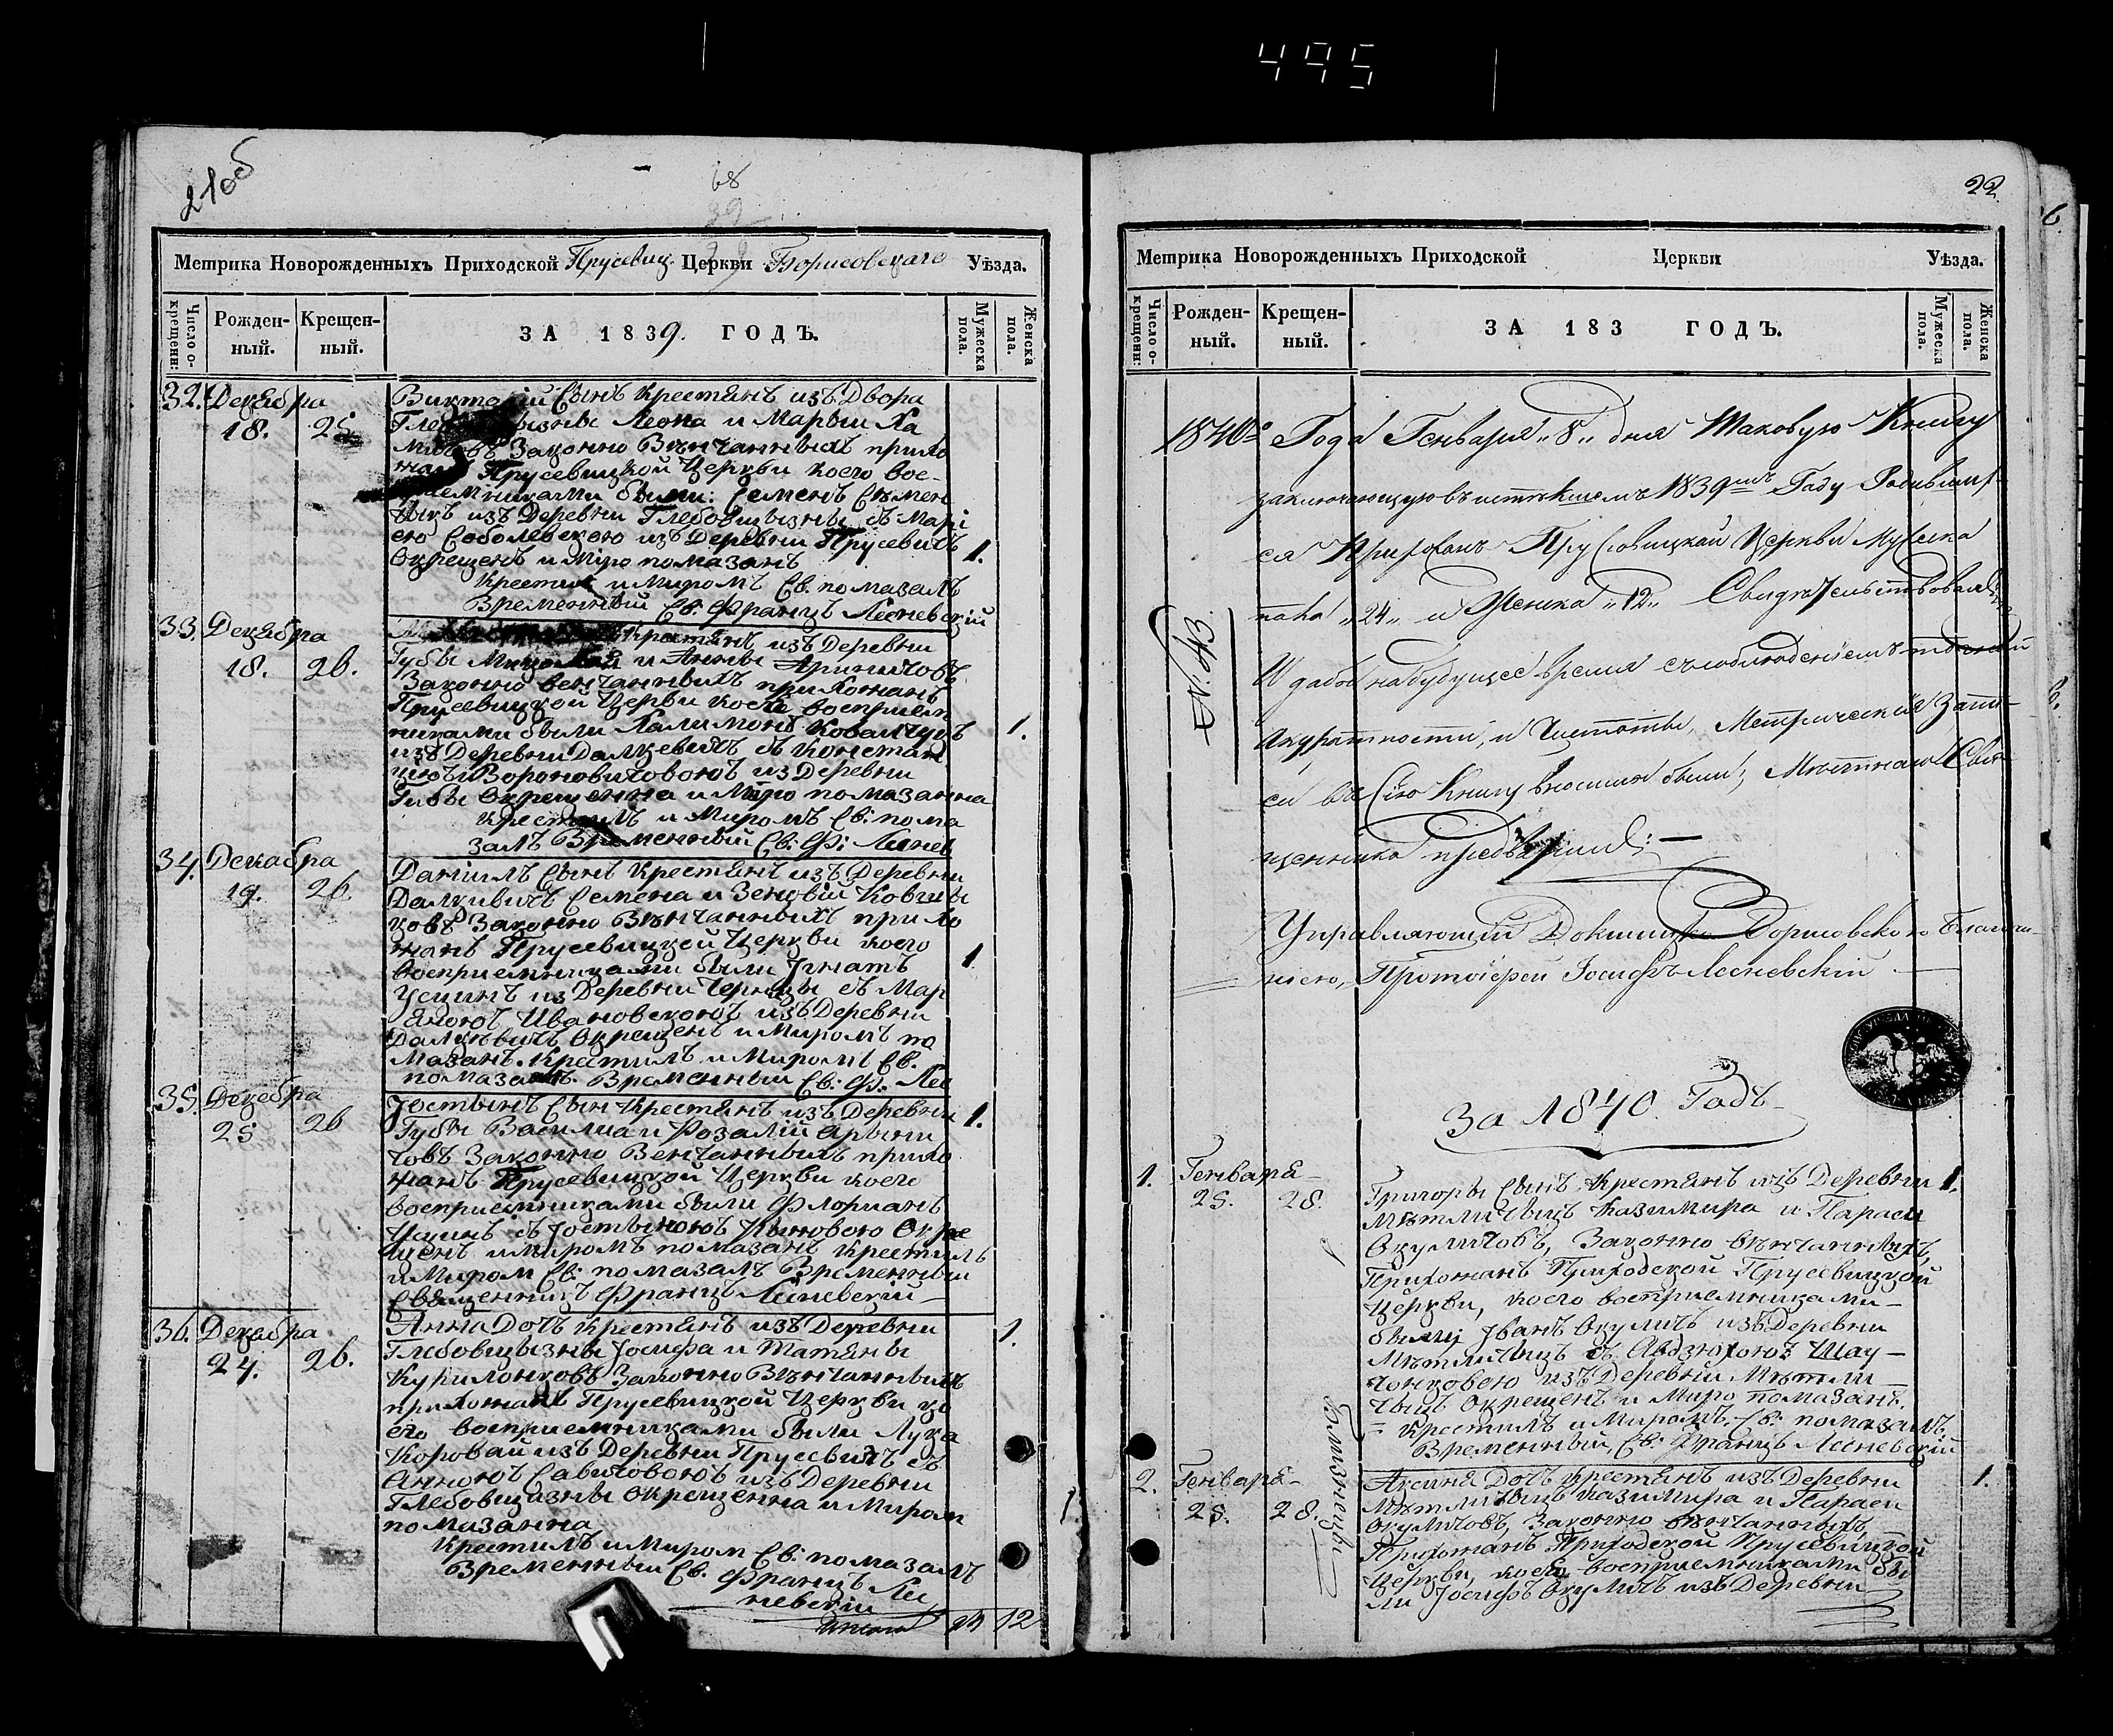 495
21об
68
39
Метрика Новорожденныхъ Приходской Прусевиц. Церкви Борисовскаго Уѣзда.
Число окрещенн:
Рожденный.
Крещенный.
ЗА 1839. ГОДЪ.
Мужеска пола.
Женска пола.
32. Декабра
18. 25.
Сынъ крестянъ изъ Двора
Леона и Марыи Ха
Законно Вѣнчанныхъ прихо
Прусевицкой Церкви коего вос-
были: Семенъ Семен
чикъ изъ Деревни Глебовщызны съ Марі
ею Соболевскою изъ Деревни Прусевичъ
Окрещенъ и Міро помазанъ 1.
Крестилъ и Миромъ Св. помазалъ
Временный Св: Францъ Лесневскій
33. Декабра
18. 26.
Крестянъ изъ Деревни
Губы и Анны Ариничовъ
Законно венчанныхъ прихожанъ
Прусевицкой Церви коее восприем
никами были Калимонъ Ковалчукъ 1.
изъ Деревни Далцевичъ съ Констан
цеюъ Вороновичовоюъ из Деревни
Губы Окрещенна и Миро помазанна
Крестилъ и Миромъ Св: пома
залъ Временный Св: Ф: Леснев
34. Декабра
19. 26.
Данiилъ Сынъ Крестянъ изъ Деревни
Далкивичъ Семена и Зеновіи
Законно Вѣнчанныхъ прихо
жанъ Прусевицкой Церкви коего 1
восприемниками были Iгнатъ
Усцинъ из Деревни Черницы съ Мар
яноюъ Ивановскоюъ изъ Деревни
Окрещенъ и Миромъ по
мазанъ. Крестилъ и Миромъ Св.
помазалъ. Временный Св: Ф: Лес
35. Декабра
25 26
Iостынъ Сын Крестянъ изъ Деревни 1.
Губы Василиа и Розаліи Арыни
човъ Законно Венчанныхъ прихо
жанъ Прусевицкой Церкви коего
восприемниками были Флорианъ
Усцинъ съ Iостыноюъ Окре
щенъ и миромъ помазанъ Крестилъ
и Миром Св: помазалъ Временный
Священникъ Францъ Лесневскій
36. Декабра
24. 26.
Анна Дочъ крестянъ изъ Деревни 1.
Глебовщызны Iосифа и Татяны
Курилонковъ Законно Вѣнчанныхъ
прихожанъ Прусевицкой Церкви ко
его восприемниками были Лука
Коровай изъ Деревни Прусевичъ съ
Анноюъ Савичовоюъ изъ Деревни
Глебовщизны Окрещенна и Миром
помазанна
Крестилъ и Миром Св: помазалъ
Временный Св: Францъ Лес
невскій
Итого 24 12
22.
Метрика Новорожденныхъ Приходской Церкви Уѣзда.
Число окрещенн:
Рожденный.
Крещенный.
ЗА 183 ГОДЪ.
Мужеска пола.
Женска пола.
1840го Года Генваря „8„ дня Таковую Книгу
заключающую въ истекшемъ 1839мъ Году Родивших-
ся Прихожанъ Прусовицкой Церкви Мужска
пола „24„ и Женска „12„ Свидѣтельствовалъ;
И дабы на будущее время съ соблюденіемъ точной
Акуратности, и Чистоты, Метрическія Запи-
си въ Сію Книгу вносимы были; Мѣстнаго Свя-
щенника предварилъ: —
№ 43.
Управляющій Докшицко Борисовскаго Благочи-
ніею, Протоіерей Іосифъ Лесневскій
За 1840 Годъ
1. Генвара
25. 28.
Григоры Сынъ Крестянъ изъ Деревни 1.
Мѣтличицъ Казимира и Параси
Окуличовъ, Законно вѣнчанныхъ,
Прихожанъ Приходской Прусевицкой
Церкви, коего восприемниками
были Iванъ Окуличъ изъ Деревни
Мѣтличицъ съ Авдзюхоюъ Шау-
чонковою изъ Деревни Мѣтли-
чицъ Окрещенъ и Миро помазанъ.
Крестилъ и Миромъ Св: помазалъ
Временный, Св: Францъ Лесневскій
Близнецы
2. Генвара
25. 28.
Аксина Дочъ Крестянъ изъ Деревни 1.
Мѣтличицъ Казимира и Параси
Окуличовъ, Законно вѣнчанныхъ,
Прихожанъ Приходской Прусевицкой
Церкви, коей восприемниками бы
ли Iосифъ Окуличъ изъ Деревни